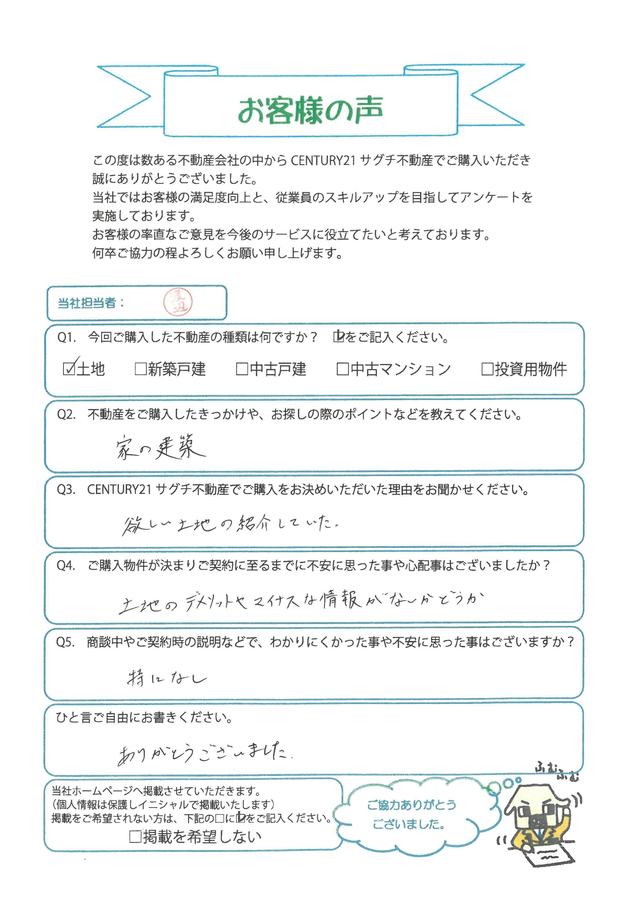 お客様の声
この度は数ある不動産会社の中から CENTURY21 サグチ不動産でご購入いただき
誠にありがとうございました。
当社ではお客様の満足度向上と、従業員のスキルアップを目指してアンケートを
実施しております。
お客様の率直なご意見を今後のサービスに役立てたいと考えております。
何卒ご協力の程よろしくお願い申し上げます。
当社担当者：
Q1. 今回ご購入した不動産の種類は何ですか？ ☑をご記入ください。
☑土地 □新築戸建 □中古戸建 □中古マンション □投資用物件
Q2. 不動産をご購入したきっかけや、お探しの際のポイントなどを教えてください。
家の建築
Q3. CENTURY21 サグチ不動産でご購入をお決めいただいた理由をお聞かせください。
欲しい土地の紹介していた。
Q4. ご購入物件が決まりご契約に至るまでに不安に思った事や心配事はございましたか？
土地のデメリットやマイナスな情報がないかどうか
Q5. 商談中やご契約時の説明などで、わかりにくかった事や不安に思った事はございますか？
特になし
ひと言ご自由にお書きください。
ありがとうございました。
当社ホームページへ掲載させていただきます。
（個人情報は保護しイニシャルで掲載いたします）
掲載をご希望されない方は、下記の□に☑をご記入ください。
□掲載を希望しない
ご協力ありがとう
ございました。
ふむふむ